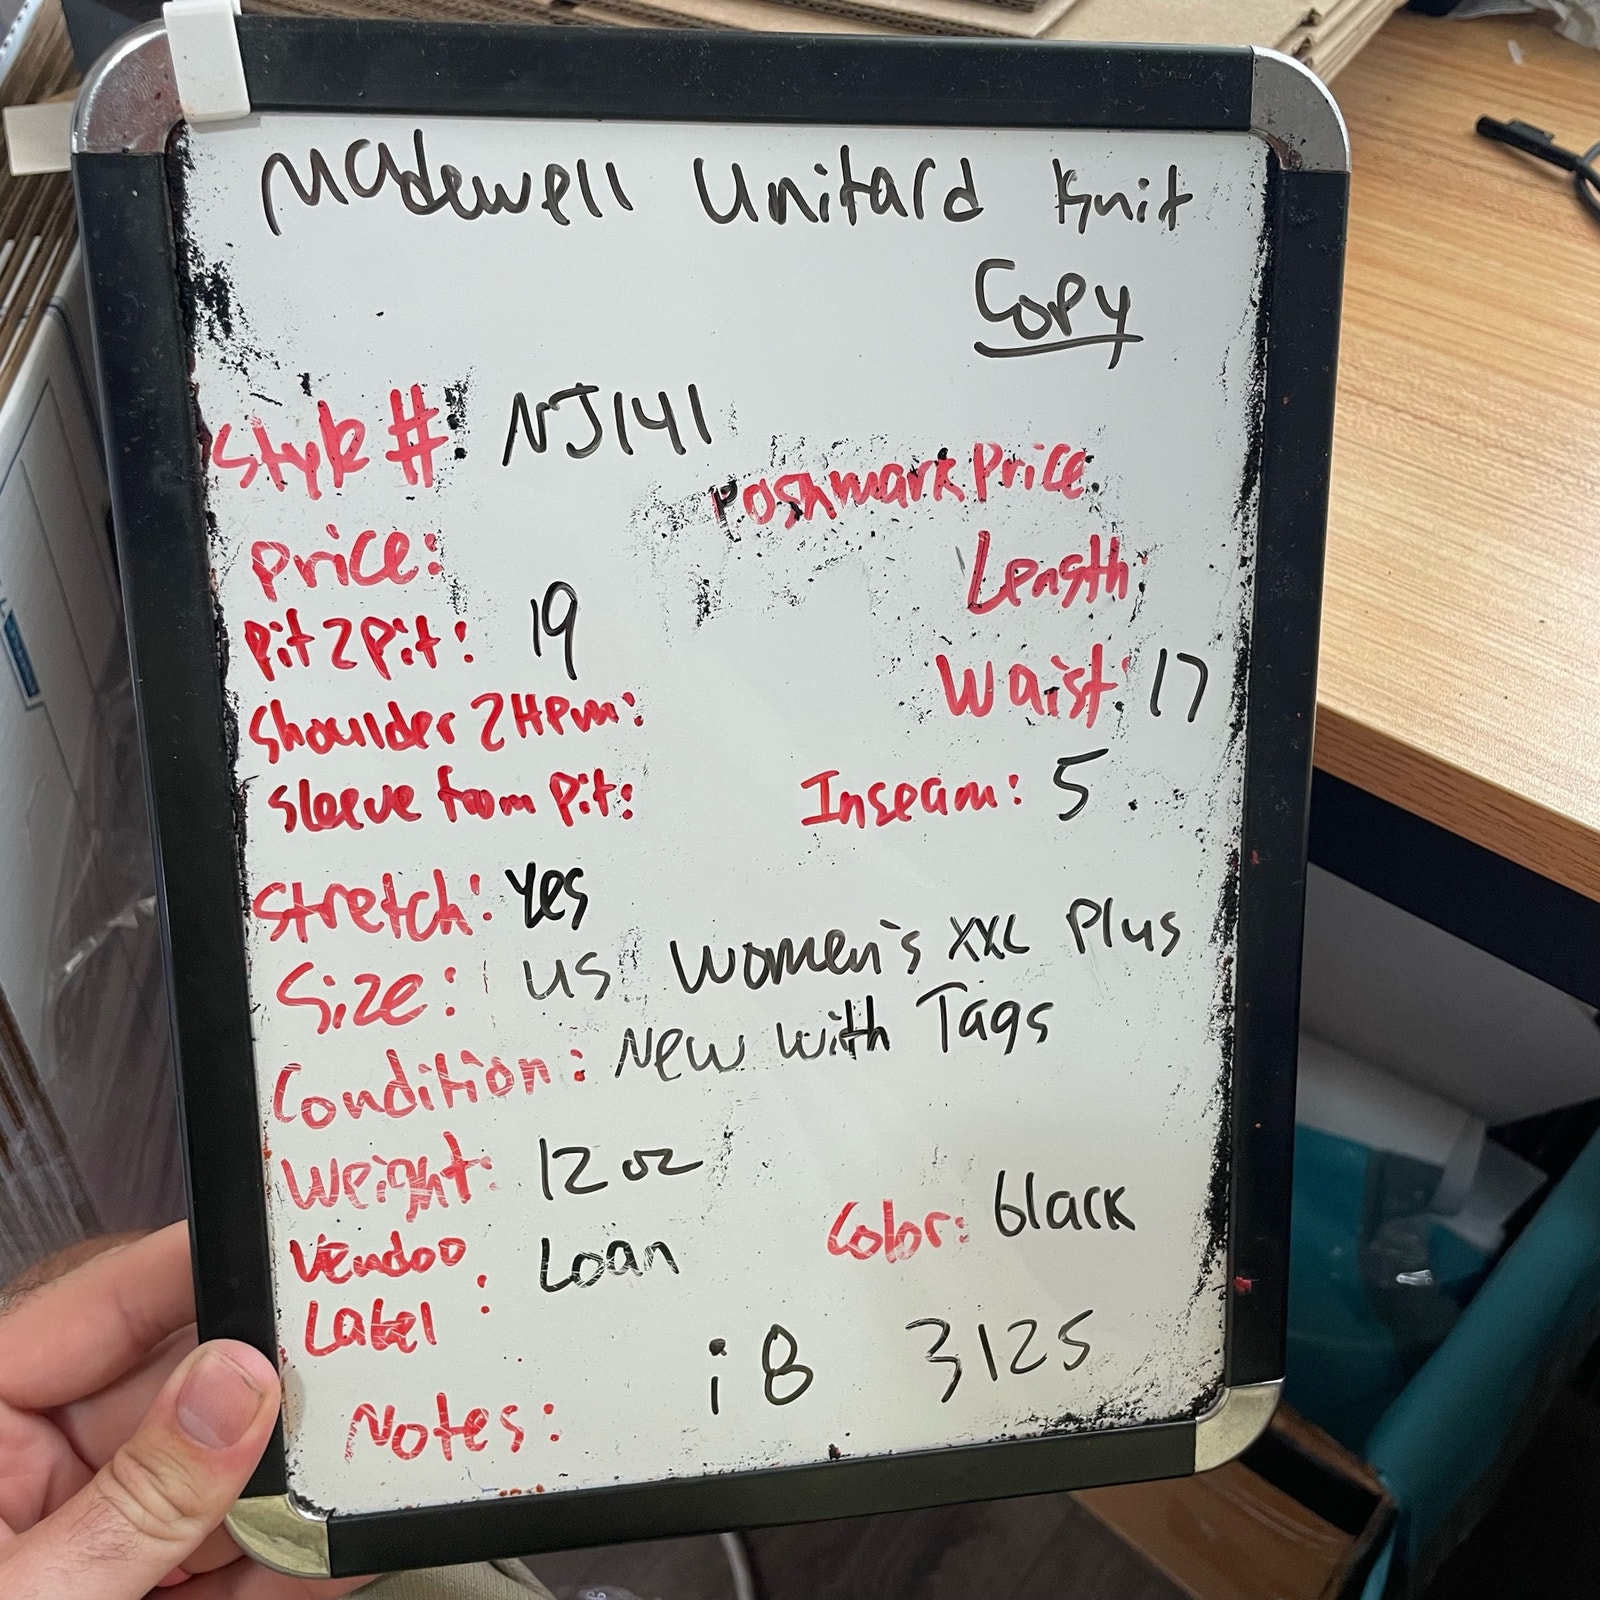 Madewell Unitard Knit
Copy
Style #: NJ141
Poshmark Price:
Price:
Length:
Pit 2 Pit: 19
Waist: 17
Shoulder 2 Hem:
Sleeve from Pit:
Inseam: 5
Stretch: Yes
Size: US Women's XXL Plus
Condition: New with Tags
Weight: 12 oz
Color: black
Vendoo Loan
Label:
i8 3125
Notes: